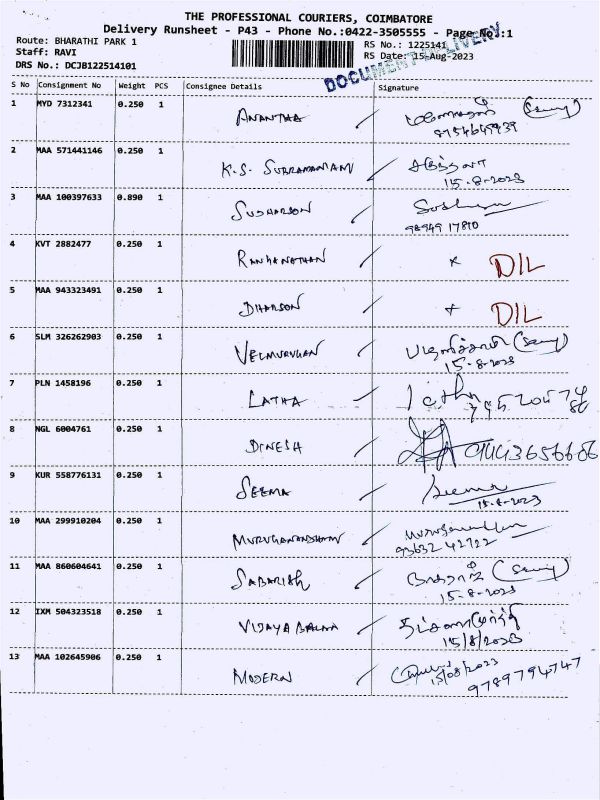 THE PROFESSIONAL COURIERS, COIMBATORE
Delivery Runsheet - P43 - Phone No.:0422-3505555 - Page No.:1
Route: BHARATHI PARK 1
RS No.: 1225141
Staff: RAVI
RS Date: 15-Aug-2023
DRS No.: DCJB122514101
DOCUMENT DELIVERY
S No Consignment No Weight PCS Consignee Details Signature
1 MYD 7312341 0.250 1 ANANTHA
2 MAA 571441146 0.250 1 K.S. SUBRAMANIAM
15-8-2023
3 MAA 100397633 0.890 1 SUDHARSON
98949 17810
4 KVT 2882477 0.250 1 RANHANATHAN x DIL
5 MAA 943323491 0.250 1 DHARSON x DIL
6 SLM 326262903 0.250 1 VELMURUGAN
15-8-2023
7 PLN 1458196 0.250 1 LATHA Latha
8 NGL 6004761 0.250 1 DINESH 9443656606
9 KUR 558776131 0.250 1 SEEMA Seema
15-8-2023
10 MAA 299910204 0.250 1 MURUGANANDHAM
93632 42722
11 MAA 860604641 0.250 1 SABARISH
15-8-2023
12 IXM 504323518 0.250 1 VIJAYABALAA
15/8/2023
13 MAA 102645906 0.250 1 MODERN
15/08/2023
9789794747